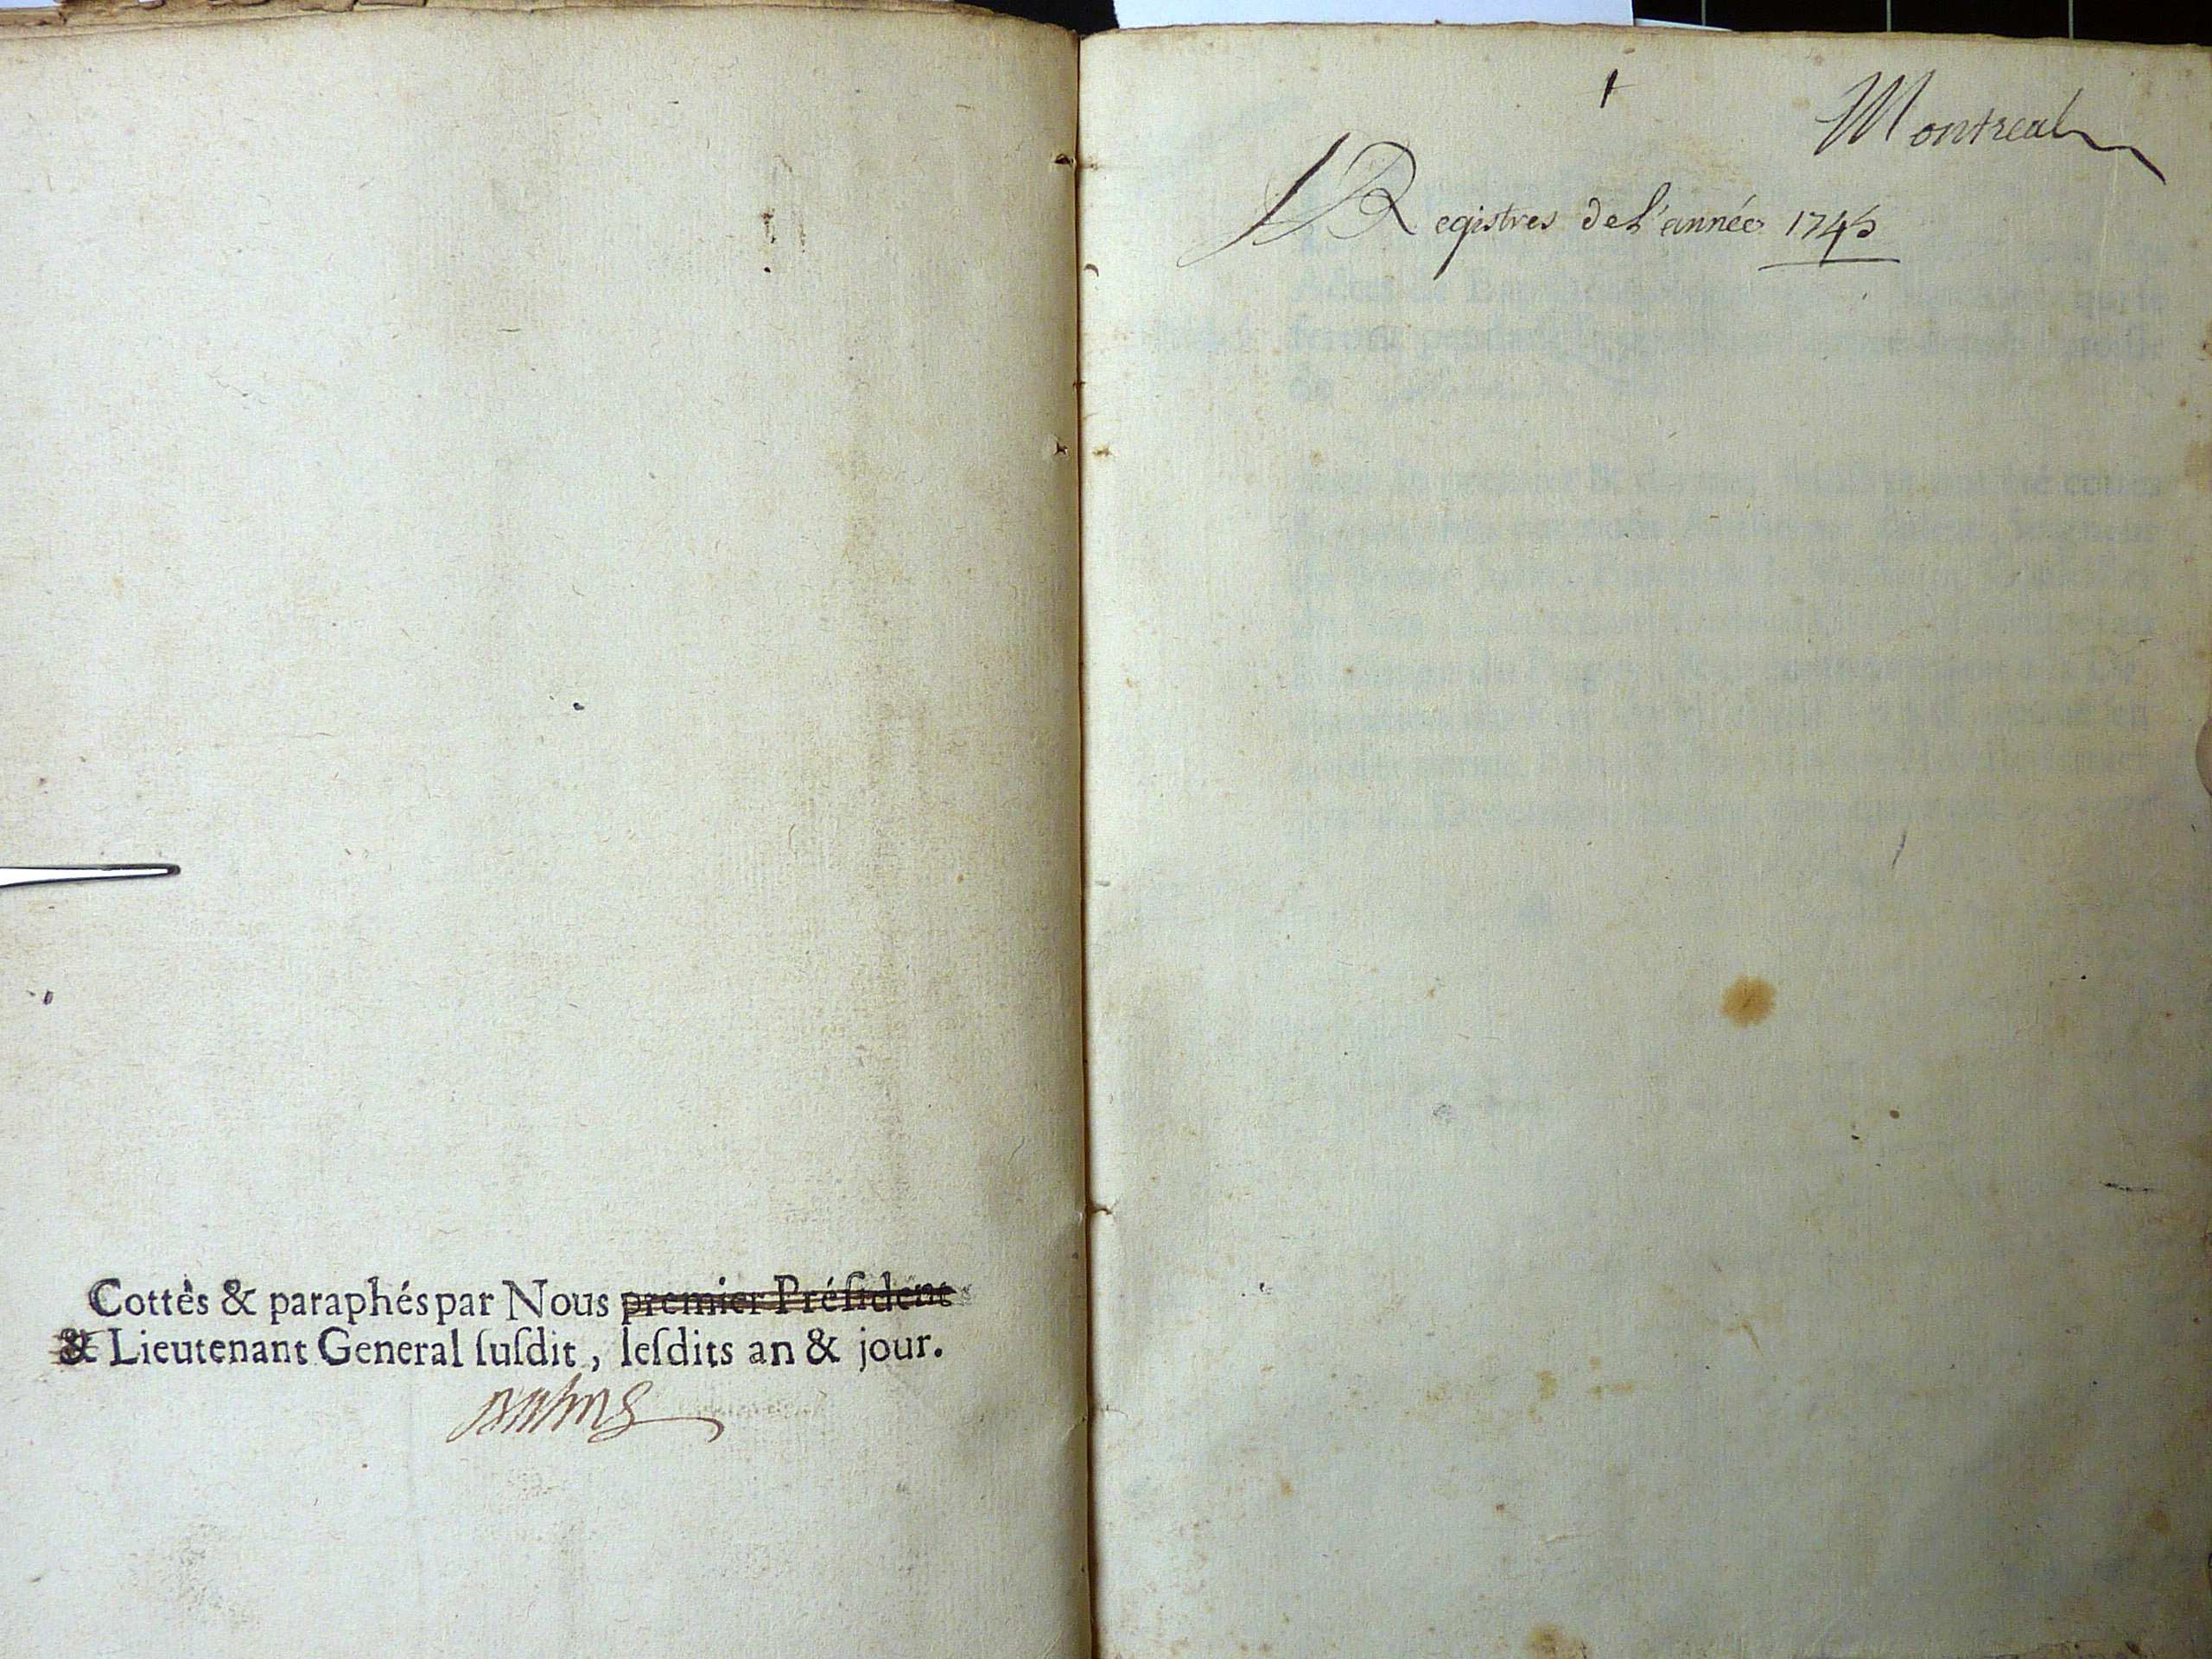 Cottès & paraphés par Nous premier Préſident
& Lieutenant General ſuſdit, leſdits an & jour.
Montreal
Registres de l'année 1745